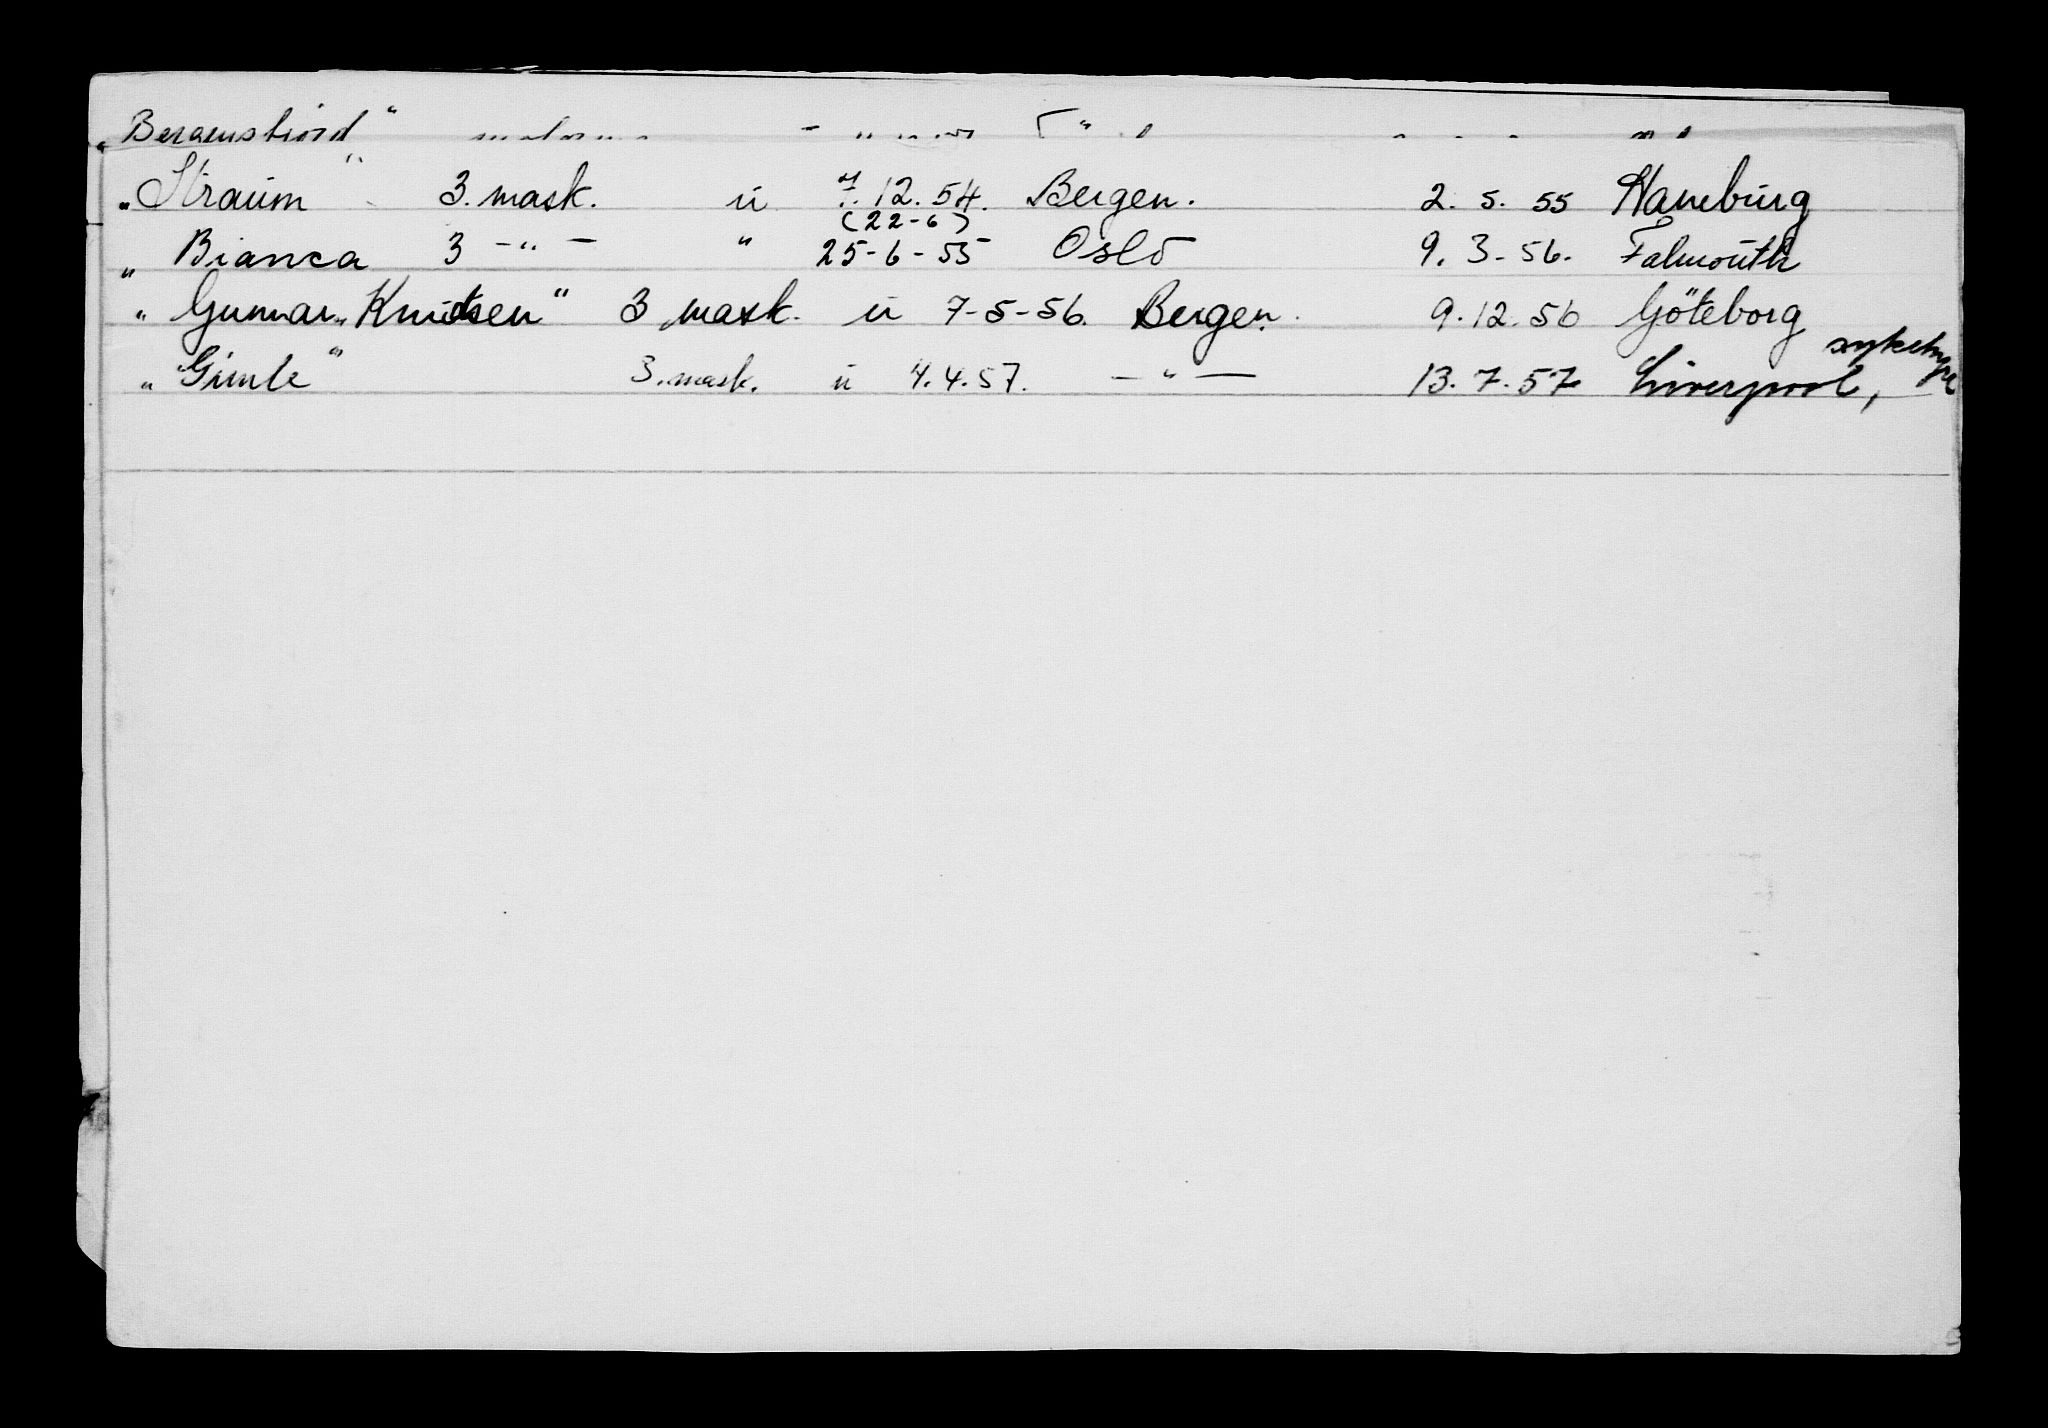 "Bergensfjord"
"Straum" 3. mask. u 7.12.54. Bergen. 2. 5. 55 Hamburg
(22-6)
" Bianca 3 -"- " 25-6-55 Oslo 9. 3-56. Falmouth
" Gunnar Knudsen" 3 mask. u 7-5-56. Bergen. 9.12.56 Göteborg
" Gimle" 3. mask. u 4.4.57. -"- 13.7.57 Liverpool,